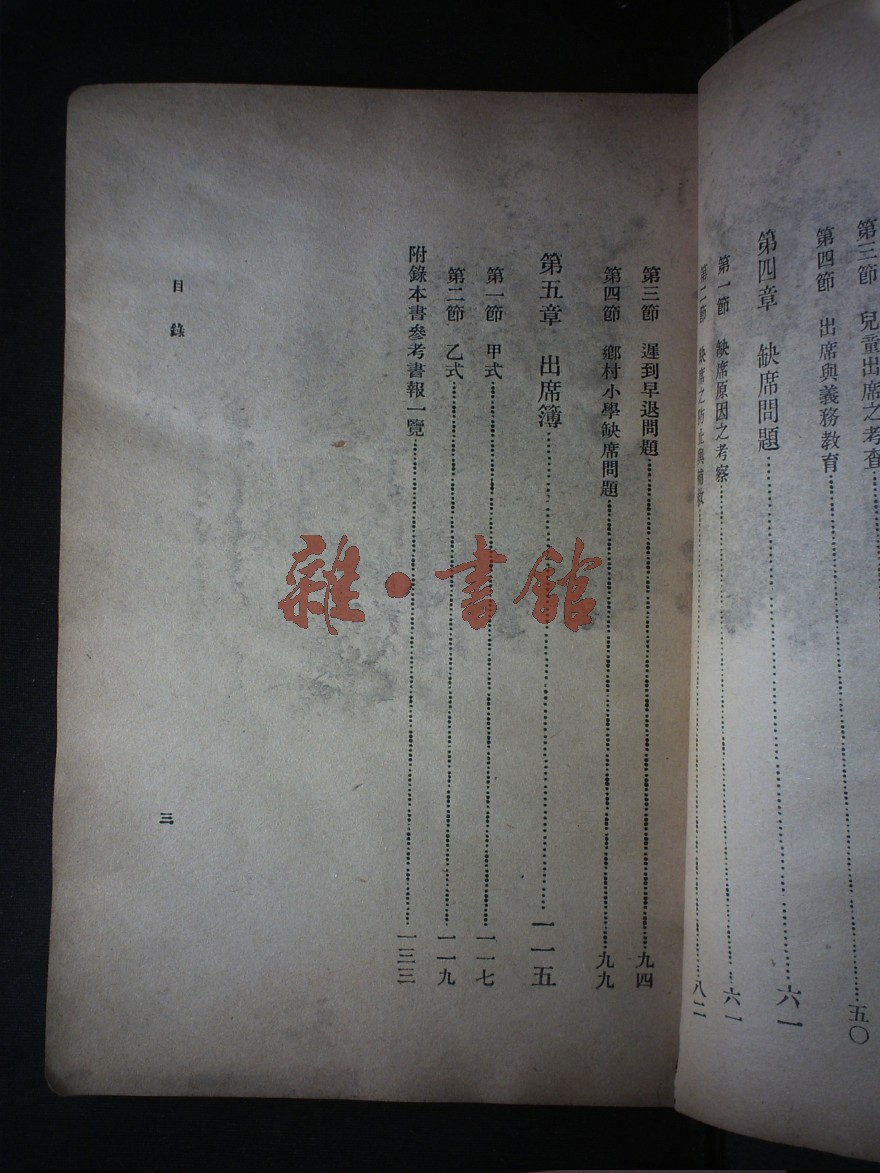 第三節　兒童出席之考查……五〇
第四節　出席與義務教育……
第四章　缺席問題……六一
第一節　缺席原因之考察……六一
第二節　缺席之防止與補救……八二
第三節　遲到早退問題……九四
第四節　鄉村小學缺席問題……九九
第五章　出席簿……一一五
第一節　甲式……一一七
第二節　乙式……一一九
附錄本書參考書報一覽……一三三
目錄
三
雜·書館